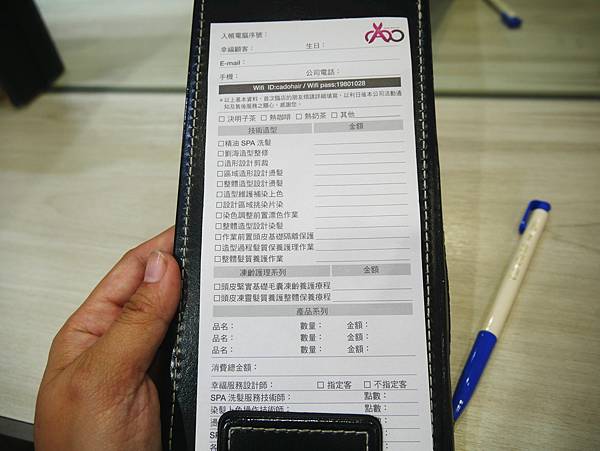 CADO
入帳電腦序號：
幸福顧客： 生日：
E-mail：
手機： 公司電話：
Wifi ID:cadohair / Wifi pass:19801028
＊以上基本資料，首次臨店的朋友煩請詳細填寫，以利日後本公司活動通
知及售後服務之關心，感謝您。
□ 決明子茶 □ 熱咖啡 □ 熱奶茶 □ 其他
技術造型 金額
□精油 SPA 洗髮
□劉海造型整修
□造形設計剪裁
□區域造形設計燙髮
□整體造型設計燙髮
□造型維護補染上色
□設計區域挑染片染
□染色調整前置漂色作業
□整體造型設計染髮
□作業前置頭皮基礎隔離保護
□造型過程髮質保養護理作業
□整體髮質養護作業
凍齡護理系列 金額
□頭皮緊實基礎毛囊凍齡養護療程
□頭皮凍靈髮質養護整體保養療程
產品系列
品名： 數量： 金額：
品名： 數量： 金額：
品名： 數量： 金額：
消費總金額：
幸福服務設計師： □ 指定客 □ 不指定客
SPA 洗髮服務技術師： 點數：
染髮上色操作技術師： 點數：